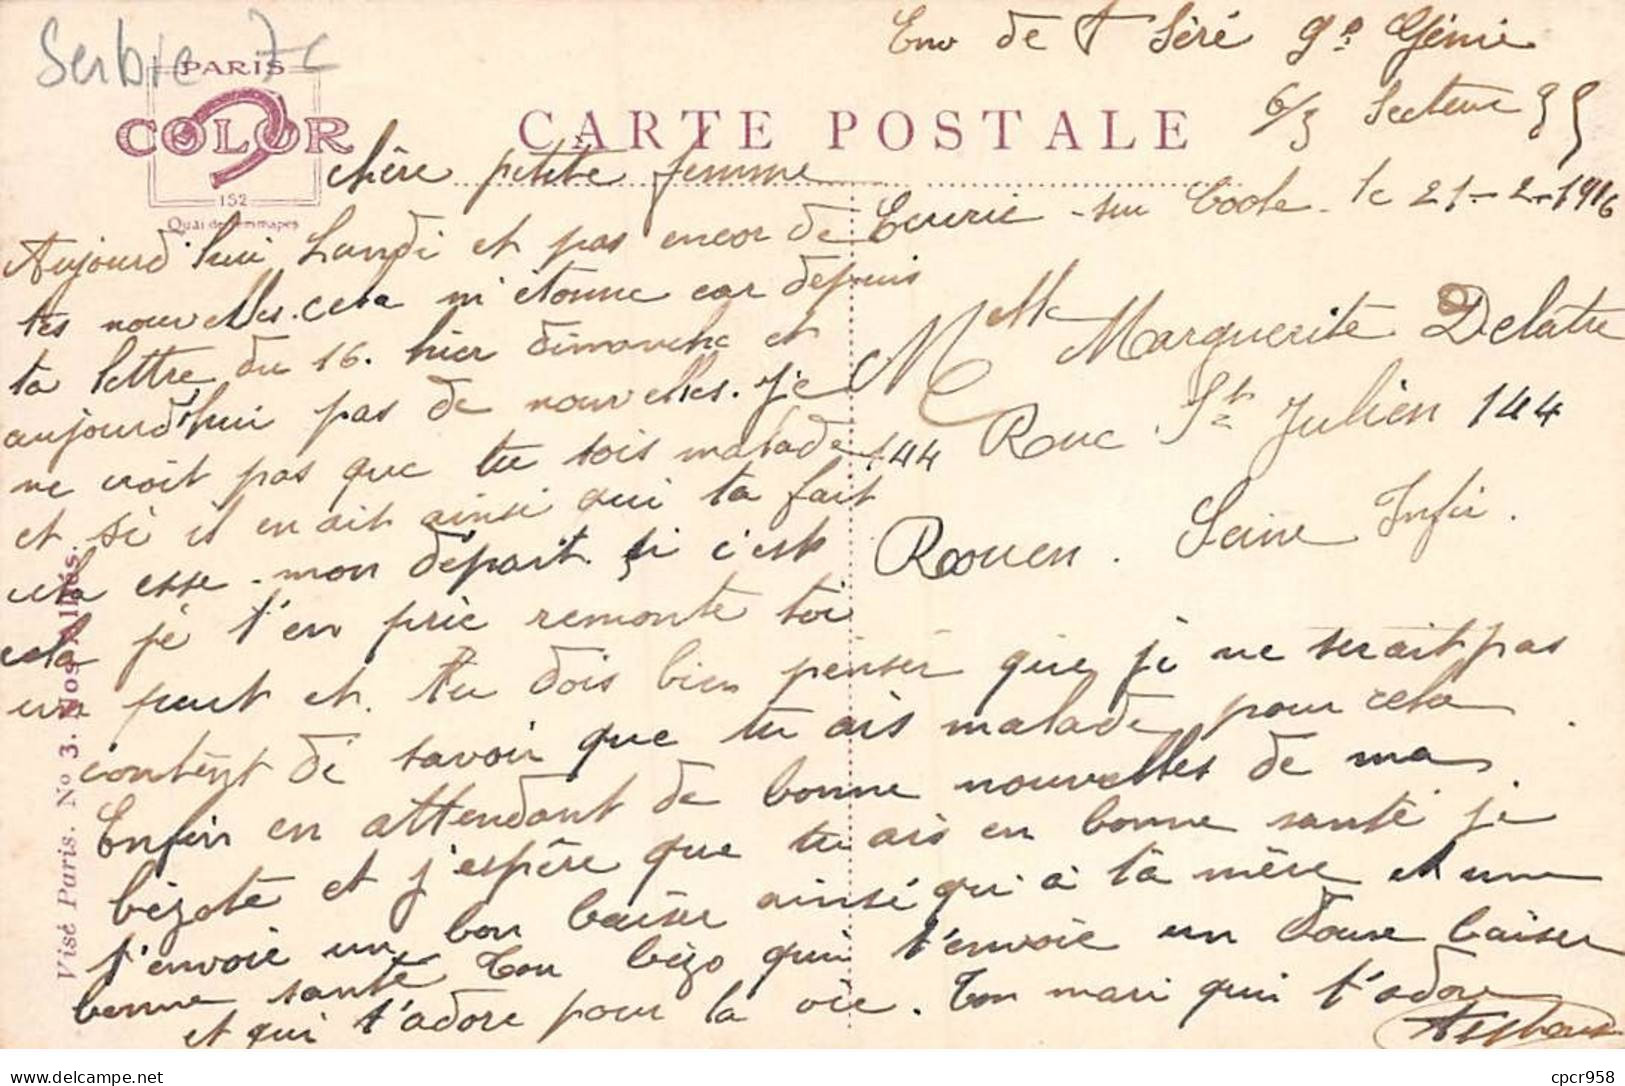 Serbie 7c
PARIS
COLOR
152
Quai de Jemmapes
CARTE POSTALE
Env de Séré Génie
6/3 Secteur
Ecurie sur Coole le 21-2-1916
Melle Marguerite Delatre
144 Rue St Julien 144
Rouen. Seine Infér.
chère petite femme
Aujourd'hui Lundi et pas encor de
tes nouvelles. cela m'étonne car depuis
ta lettre du 16. hier dimanche et
aujourd'hui pas de nouvelles. je
ne croit pas que tu sois malade
et si il en ait ainsi qui ta fait
cela esse mon départ. si c'est
cela je t'en prie remonte toi
un peut et. tu dois bien penser que je ne serait pas
content de savoir que tu ais malade pour cela.
Enfin en attendant de bonne nouvelles de ma
bézote et j'espère que tu ais en bonne santé je
t'envoie un bon baiser ainsi qui a ta mère et une
bonne santé Ton bézo qui t'envoie un douse baiser
et qui t'adore pour la vie. Ton mari qui t'adore
Visé Paris. No 3. Nos Alliés.
cpcr958